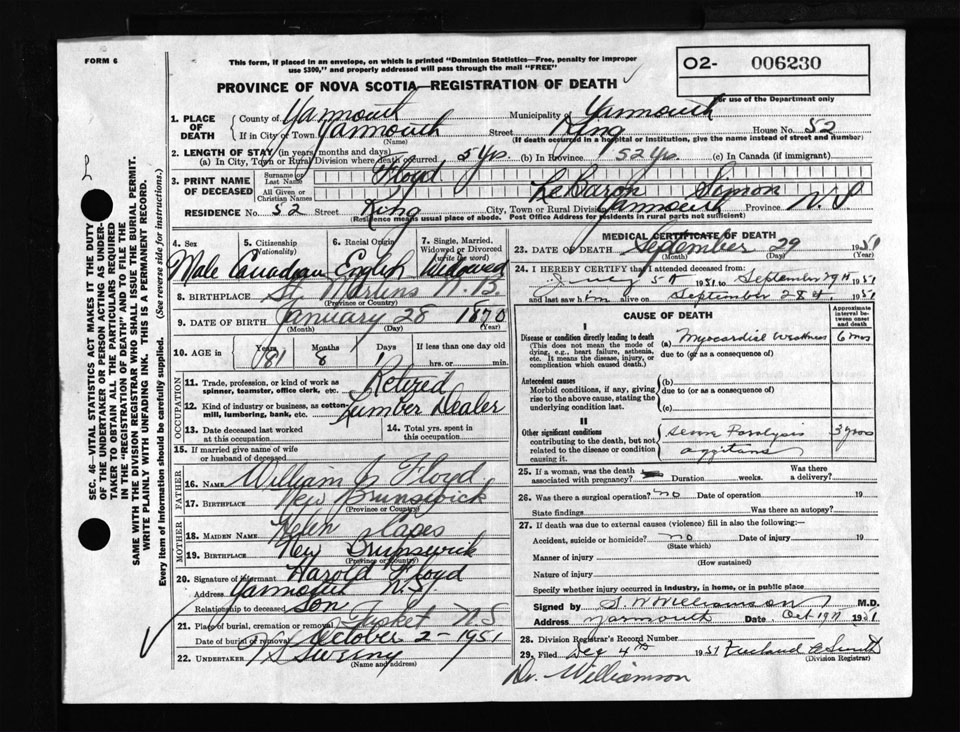 FORM 6
This form, if placed in an envelope, on which is printed "Dominion Statistics—Free, penalty for improper
use $300," and properly addressed will pass through the mail "FREE"
O2- 006230
For use of the Department only
PROVINCE OF NOVA SCOTIA—REGISTRATION OF DEATH
1. PLACE OF DEATH
County of Yarmouth Municipality of Yarmouth
If in City or Town Yarmouth Street King House No. 52
(Name) (If death occurred in a hospital or institution, give the name instead of street and number)
2. LENGTH OF STAY (in years, months and days)
(a) In City, Town or Rural Division where death occurred 5 Yrs. (b) In Province 52 Yrs. (c) In Canada (if immigrant)
3. PRINT NAME OF DECEASED
Surname or Last Name Floyd
All Given or Christian Names LeBaron Simon
RESIDENCE No. 52 Street King City, Town or Rural Division Yarmouth Province N.S
(Residence means usual place of abode. Post Office Address for residents in rural parts not sufficient)
4. Sex 5. Citizenship (Nationality) 6. Racial Origin 7. Single, Married, Widowed or Divorced (write the word)
Male Canadian English Widowed
8. BIRTHPLACE St. Martins N.B.
(Province or Country)
9. DATE OF BIRTH January 28 1870
(Month) (Day) (Year)
10. AGE in Years Months Days If less than one day old
81 8 1 hrs. or min.
OCCUPATION
11. Trade, profession, or kind of work as spinner, teamster, office clerk, etc. Retired
12. Kind of industry or business, as cotton-mill, lumbering, bank, etc. Lumber Dealer
13. Date deceased last worked at this occupation
14. Total yrs. spent in this occupation
15. If married give name of wife or husband of deceased
FATHER
16. NAME William J Floyd
17. BIRTHPLACE New Brunswick
(Province or Country)
MOTHER
18. MAIDEN NAME Helen Capes
19. BIRTHPLACE New Brunswick
(Province or Country)
20. Signature of informant Harold Floyd
Address Yarmouth N.S.
Relationship to deceased Son
21. Place of burial, cremation or removal Tusket N S
Date of burial or removal October 2 - 1951
22. UNDERTAKER Sweeny
(Name and address)
MEDICAL CERTIFICATE OF DEATH
23. DATE OF DEATH September 29 1951
(Month) (Day) (Year)
24. I HEREBY CERTIFY that I attended deceased from
5th 1951 to September 29th 1951
and last saw him alive on September 28th. 1951
CAUSE OF DEATH
Approximate interval between onset and death
I
Disease or condition directly leading to death (a) Myocardial Weakness 6 mos
(This does not mean the mode of dying, e.g., heart failure, asthenia, etc. It means the disease, injury, or complication which caused death.)
due to (or as a consequence of)
Antecedent causes
Morbid conditions, if any, giving rise to the above cause, stating the underlying condition last.
(b)
due to (or as a consequence of)
(c)
II
Other significant conditions contributing to the death, but not related to the disease or condition causing it.
Paralysis 3 yrs
aggitans
25. If a woman, was the death associated with pregnancy? Duration weeks. Was there a delivery?
26. Was there a surgical operation? no Date of operation 19
State findings Was there an autopsy?
27. If death was due to external causes (violence) fill in also the following:—
Accident, suicide or homicide? no Date of injury 19
(State which)
Manner of injury
(How sustained)
Nature of injury
Specify whether injury occurred in industry, in home, or in public place
Signed by S. W Williamson M.D.
Address Yarmouth Date Oct 17th 1951
28. Division Registrar's Record Number
29. Filed Dec 4th 1951 Smith
(Division Registrar)
Dr. Williamson
SEC. 46—VITAL STATISTICS ACT MAKES IT THE DUTY
OF THE UNDERTAKER OR PERSON ACTING AS UNDER-
TAKER TO OBTAIN ALL THE PARTICULARS REQUIRED
IN THE "REGISTRATION OF DEATH" AND TO FILE THE
SAME WITH THE DIVISION REGISTRAR WHO SHALL ISSUE THE BURIAL PERMIT.
WRITE PLAINLY WITH UNFADING INK. THIS IS A PERMANENT RECORD.
Every item of information should be carefully supplied. (See reverse side for instructions.)